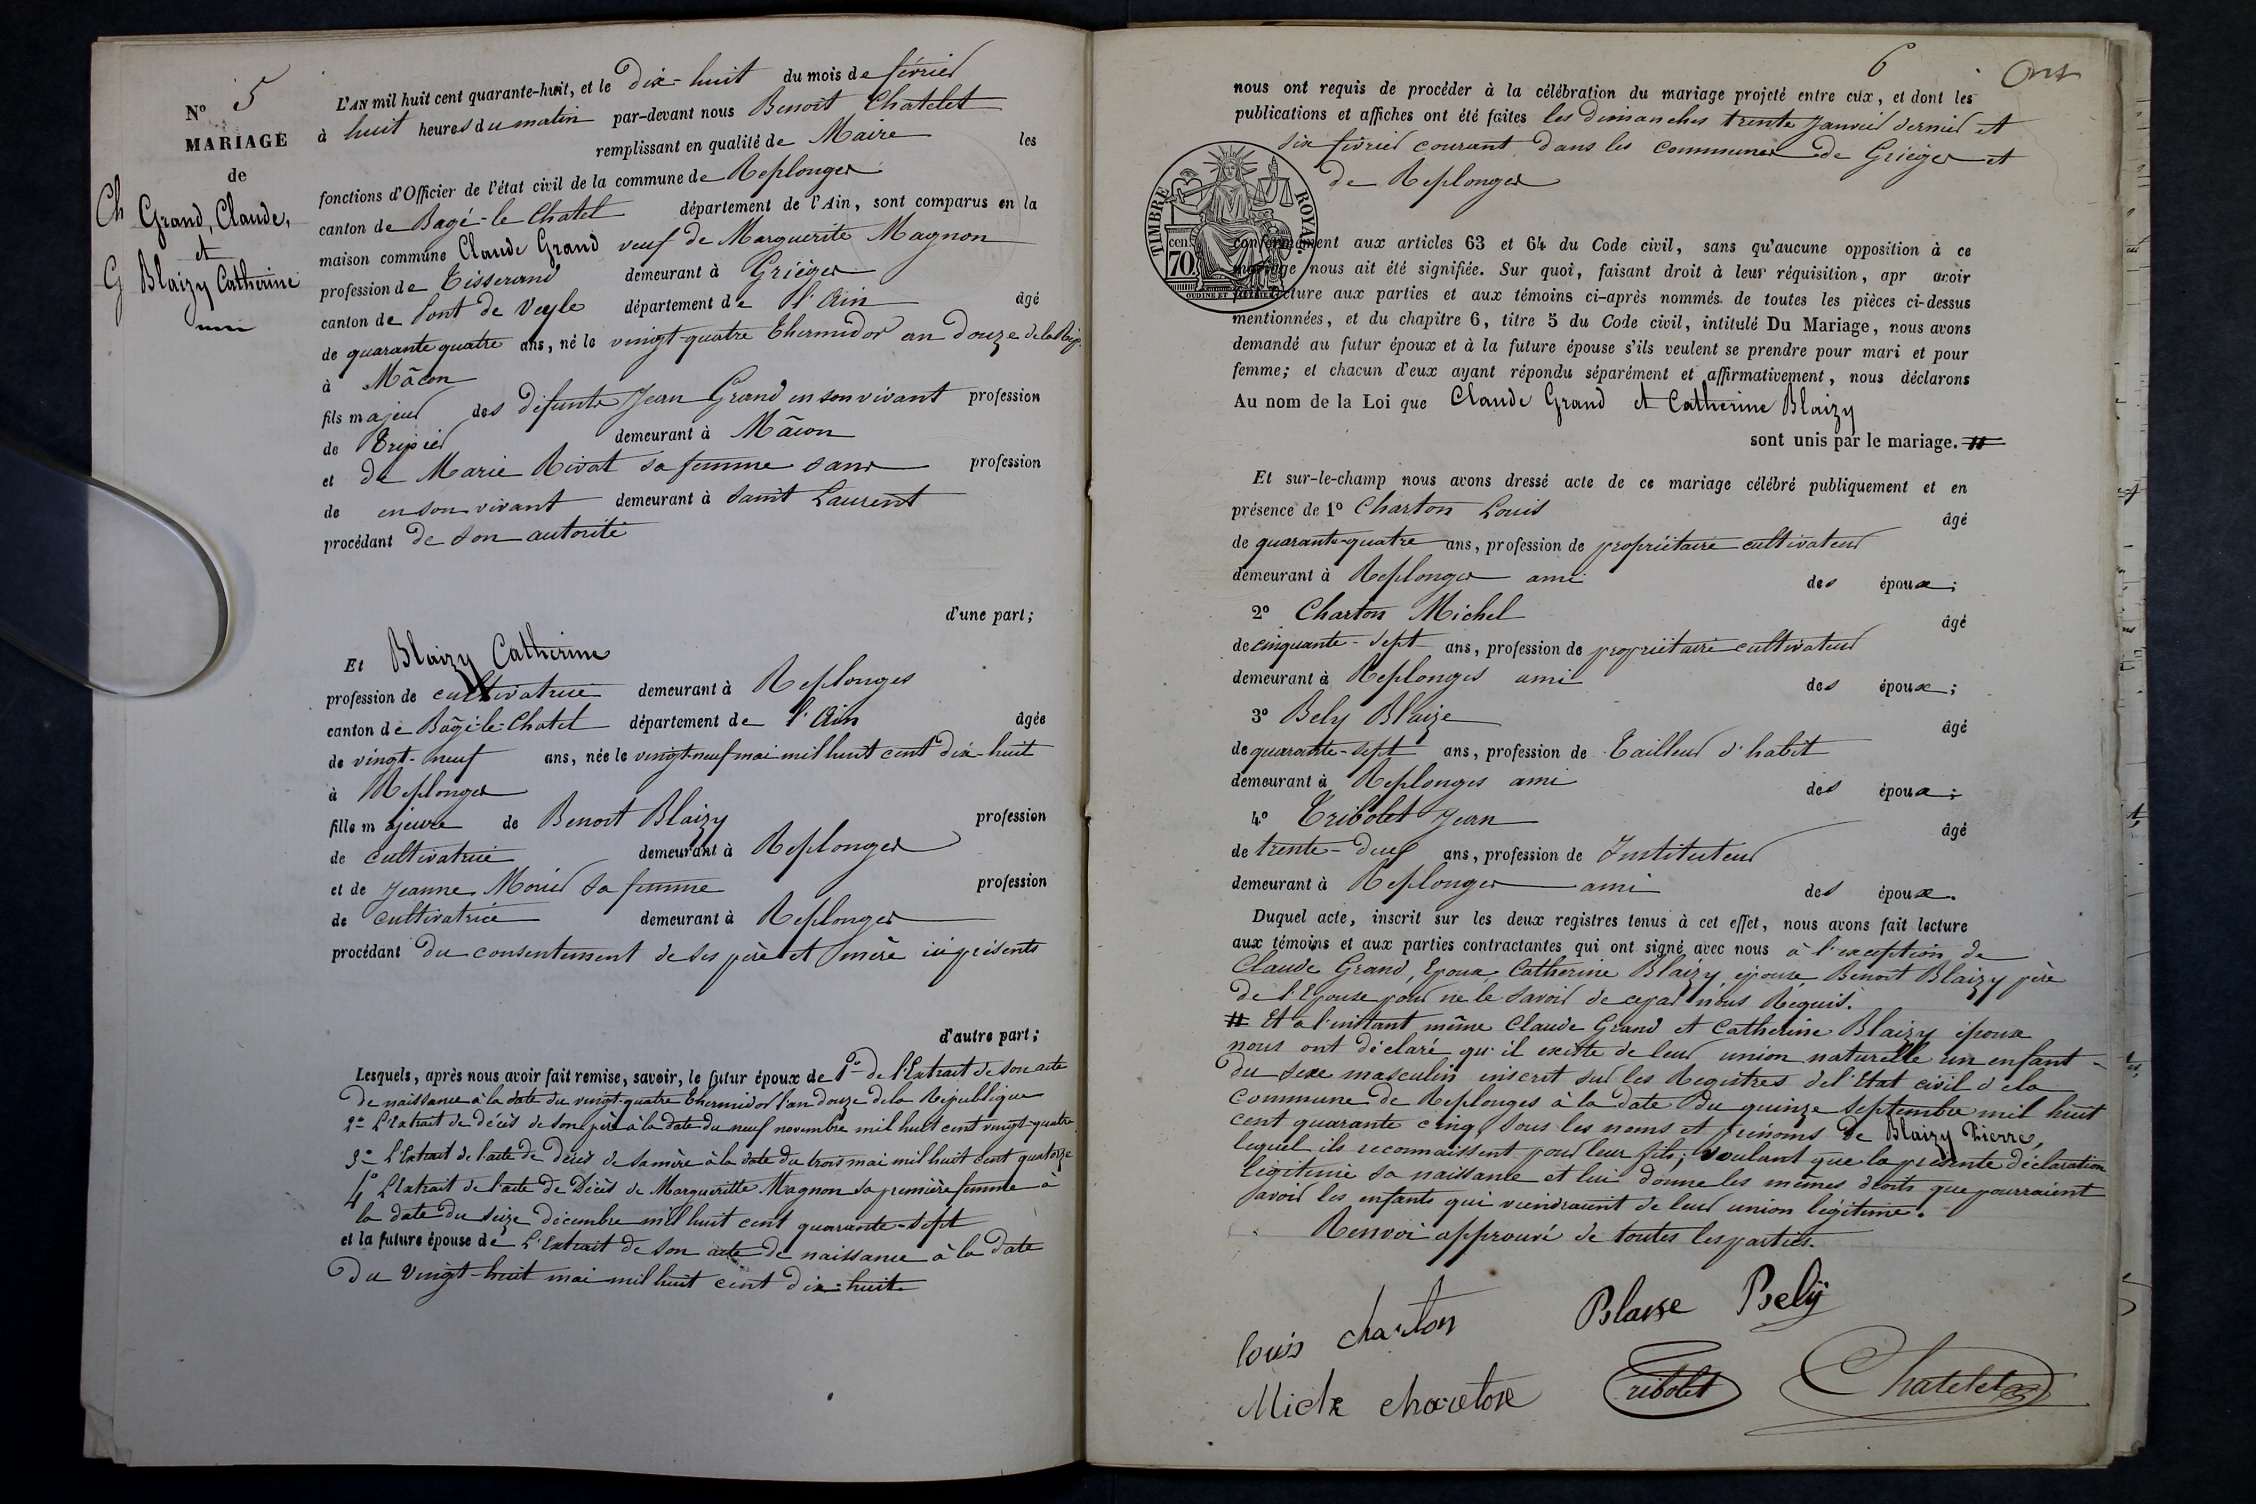 N° 5
MARIAGE
de
Ch Grand, Claude,
et
G Blaizy Catherine
L'AN mil huit cent quarante-huit, et le dix-huit du mois de février
à huit heures du matin par-devant nous Benoit Chatelet
remplissant en qualité de Maire les
fonctions d'Officier de l'état civil de la commune de Replonges
canton de Bagé-le-Chatel département de l'Ain, sont comparus en la
maison commune Claude Grand veuf de Marguerite Magnon
profession de Tisserand demeurant à Grièges
canton de Pont de Veyle département de l'Ain âgé
de quarante quatre ans, né le vingt-quatre Thermidor an douze de la Rép.
à Mâcon
fils majeur des défunts Jean Grand en son vivant profession
de Tripier demeurant à Mâcon
et de Marie Rivat sa femme sans profession
de en son vivant demeurant à Saint Laurent
procédant de son autorité
d'une part;
Et Blaizy Catherine
profession de cultivatrice demeurant à Replonges
canton de Bagé-le-Chatel département de l'Ain âgée
de vingt-neuf ans, née le vingt-neuf mai mil huit cent dix-huit
à Replonges
fille majeure de Benoit Blaizy profession
de cultivatrice demeurant à Replonges
et de Jeanne Morier sa femme profession
de cultivatrice demeurant à Replonges
procédant du consentement de ses père et mère ici présents
d'autre part;
Lesquels, après nous avoir fait remise, savoir, le futur époux de 1° de l'Extrait de son acte
de naissance à la date du vingt-quatre Thermidor l'an douze de la République
2° L'Extrait de décès de son père à la date du neuf novembre mil huit cent vingt-quatre
3° L'Extrait de l'acte de Décès de sa mère à la date du trois mai mil huit cent quatorze
4° L'Extrait de l'acte de Décès de Margueritte Magnon sa première femme à
la date du seize décembre mil huit cent quarante-sept
et la future épouse de L'Extrait de son acte de naissance à la date
du vingt-huit mai mil huit cent dix-huit
6
nous ont requis de procéder à la célébration du mariage projeté entre eux, et dont les
publications et affiches ont été faites les dimanches trente Janvier dernier et
six février courant dans les communes de Grièges et
de Replonges
TIMBRE ROYAL
cen. 70.
conformément aux articles 63 et 64 du Code civil, sans qu'aucune opposition à ce
mariage nous ait été signifiée. Sur quoi, faisant droit à leur réquisition, apr avoir
fait lecture aux parties et aux témoins ci-après nommés de toutes les pièces ci-dessus
mentionnées, et du chapitre 6, titre 5 du Code civil, intitulé Du Mariage, nous avons
demandé au futur époux et à la future épouse s'ils veulent se prendre pour mari et pour
femme; et chacun d'eux ayant répondu séparément et affirmativement, nous déclarons
Au nom de la Loi que Claude Grand et Catherine Blaizy
sont unis par le mariage. #
Et sur-le-champ nous avons dressé acte de ce mariage célébré publiquement et en
présence de 1° Charton Louis âgé
de quarante-quatre ans, profession de propriétaire cultivateur
demeurant à Replonges ami des époux;
2° Charton Michel âgé
de cinquante-sept ans, profession de propriétaire cultivateur
demeurant à Replonges ami des époux;
3° Bely Blaize âgé
de quarante-sept ans, profession de Tailleur d'habit
demeurant à Replonges ami des époux;
4° Tribolet Jean âgé
de trente-deux ans, profession de Instituteur
demeurant à Replonges ami des époux.
Duquel acte, inscrit sur les deux registres tenus à cet effet, nous avons fait lecture
aux témoins et aux parties contractantes qui ont signé avec nous à l'exception de
Claude Grand, Epoux Catherine Blaizy épouse Benoit Blaizy père
de l'Epouse pour ne le savoir de ce par nous Requis.
# Et à l'instant même Claude Grand et Catherine Blaizy époux
nous ont déclaré qu'il existe de leur union naturelle un enfant
du sexe masculin inscrit sur les Registres de l'Etat civil de la
Commune de Replonges à la date du quinze Septembre mil huit
cent quarante cinq, sous les noms et prénoms de Blaizy Pierre,
lequel ils reconnaissent pour leur fils; voulant que la présente déclaration
légitime sa naissance et lui donne les mêmes droits que pourraient
avoir les enfants qui viendraient de leur union légitime.
Renvoi approuvé de toutes les parties.
louis charton Blaise Bely
Tribolet Chatelet